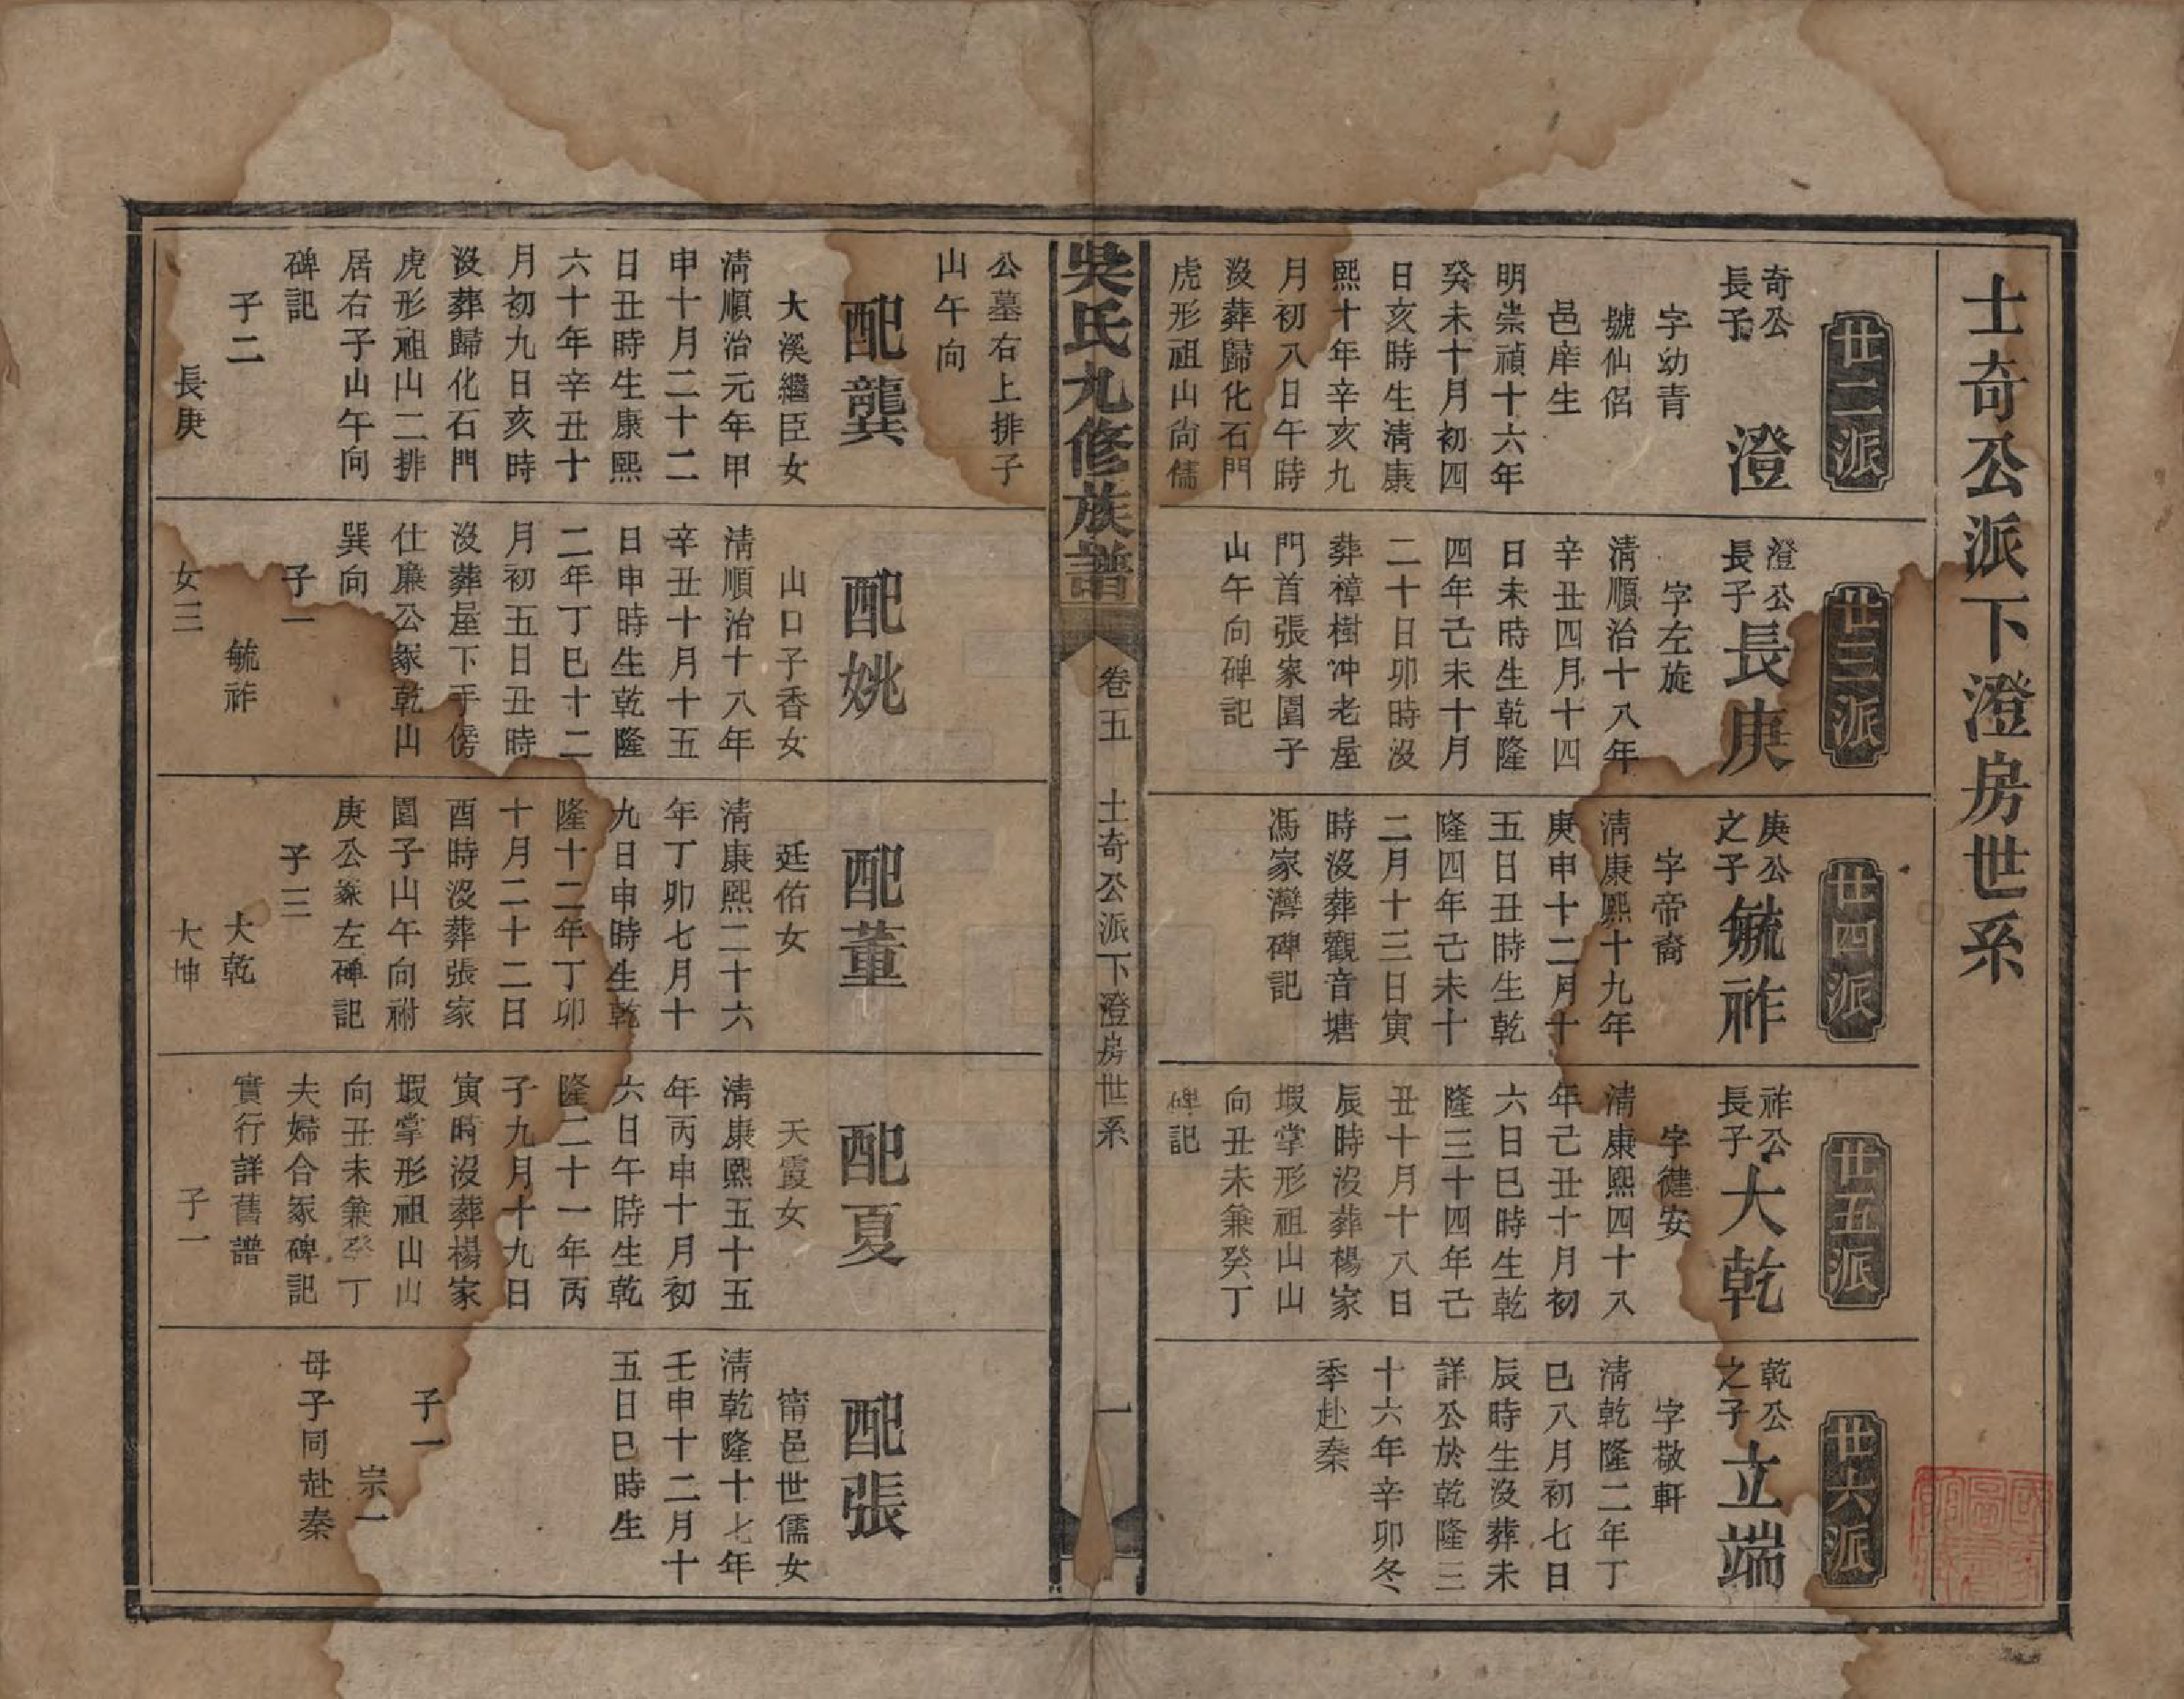 士奇公派下澄房世系
廿二派
奇公
長子
澄
字幼青
號仙侶
邑庠生
明崇禎十六年
癸未十月初四
日亥時生清康
熙十年辛亥九
月初八日午時
沒葬歸化石門
虎形祖山尙儒
廿三派
澄公
長子
長庚
字左旋
清順治十八年
辛丑四月十四
日未時生乾隆
四年己未十月
二十日卯時沒
葬樟樹冲老屋
門首張家園子
山午向碑記
廿四派
庚公
之子
毓祚
字帝裔
清康熙十九年
庚申十二月十
五日丑時生乾
隆四年己未十
二月十三日寅
時沒葬觀音塘
馮家灣碑記
廿五派
祚公
長子
大乾
字健安
清康熙四十八
年己丑十月初
六日巳時生乾
隆三十四年己
丑十月十八日
辰時沒葬楊家
塅掌形祖山山
向丑未兼癸丁
碑記
廿六派
乾公
之子
立端
字敬軒
清乾隆二年丁
巳八月初七日
辰時生沒葬未
詳公於乾隆三
十六年辛卯冬
季赴秦
吳氏九修族譜
卷五
士奇公派下澄房世系
一
公墓右上排子
山午向
配龔
大溪繼臣女
清順治元年甲
申十月二十二
日丑時生康熙
六十年辛丑十
月初九日亥時
沒葬歸化石門
虎形祖山二排
居右子山午向
碑記
子二
長庚
配姚
山口子香女
清順治十八年
辛丑十月十五
日申時生乾隆
二年丁巳十二
月初五日丑時
沒葬屋下手傍
仕廉公冢乾山
巽向
子一
毓祚
女三
配董
廷佑女
清康熙二十六
年丁卯七月十
九日申時生乾
隆十二年丁卯
十月二十二日
酉時沒葬張家
園子山午向祔
庚公冢左碑記
子三
大乾
大坤
配夏
天霞女
清康熙五十五
年丙申十月初
六日午時生乾
隆二十一年丙
子九月十九日
寅時沒葬楊家
塅掌形祖山山
向丑未兼癸丁
夫婦合冢碑記
實行詳舊譜
子一
配張
甯邑世儒女
清乾隆十七年
壬申十二月十
五日巳時生
子一
宗一
母子同赴秦